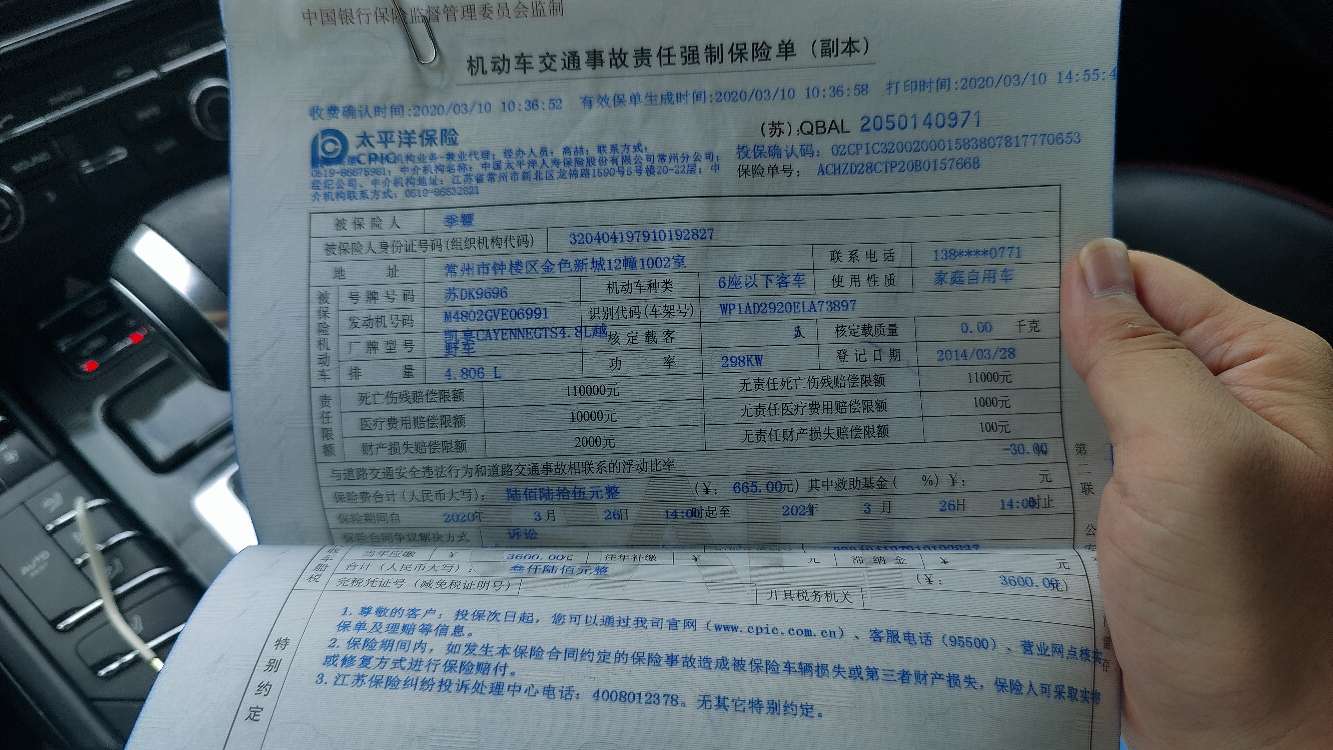 中国银行保险监督管理委员会监制
机动车交通事故责任强制保险单（副本）
收费确认时间:2020/03/10 10:36:52 有效保单生成时间:2020/03/10 10:36:58 打印时间:2020/03/10 14:55:4
太平洋保险
CPIC
(苏):QBAL 2050140971
投保确认码：02CPIC320020001583807817770653
保险单号：ACHZ028CTP20B015766B
机构业务-兼业代理；经办人员：高喆；联系方式：
0519-86678981；中介机构名称：中国太平洋人寿保险股份有限公司常州分公司；
中介机构地址：江苏省常州市新北区龙锦路1590号6号楼20-22层；中
介机构联系方式：0519-86632821
被保险人 季震
被保险人身份证号码(组织机构代码) 320404197910192827
地址 常州市钟楼区金色新城12幢1002室 联系电话 138****0771
被保险机动车
号牌号码 苏DK9696 机动车种类 6座以下客车 使用性质 家庭自用车
发动机号码 M4802GVE06991 识别代码(车架号) WP1AD2920ELA73897
厂牌型号 凯宴CAYENNEGTS4.8L越野车 核定载客 人 核定载质量 0.00 千克
排量 4.806 L 功率 298KW 登记日期 2014/03/28
责任限额
死亡伤残赔偿限额 110000元 无责任死亡伤残赔偿限额 11000元
医疗费用赔偿限额 10000元 无责任医疗费用赔偿限额 1000元
财产损失赔偿限额 2000元 无责任财产损失赔偿限额 100元
与道路交通安全违法行为和道路交通事故相联系的浮动比率 -30.00 %
保险费合计(人民币大写)： 陆佰陆拾伍元整 (￥： 665.00元) 其中救助基金( %)￥： 元
保险期间自 2020年 3月 26日 14:00时起至 2021年 3月 26日 14:00时止
保险合同争议解决方式 诉讼
当年应缴 ￥ 3600.00元 往年补缴 ￥ 元 滞纳金 ￥ 元
合计(人民币大写)： 叁仟陆佰元整 (￥： 3600.00元)
完税凭证号(减免税证明号) 开具税务机关
特别约定
1. 尊敬的客户：投保次日起，您可以通过我司官网（www.cpic.com.cn）、客服电话（95500）、营业网点核实
保单及理赔等信息。
2. 保险期间内，如发生本保险合同约定的保险事故造成被保险车辆损失或第三者财产损失，保险人可采取实物
或修复方式进行保险赔付。
3. 江苏保险纠纷投诉处理中心电话：4008012378。无其它特别约定。
第二联